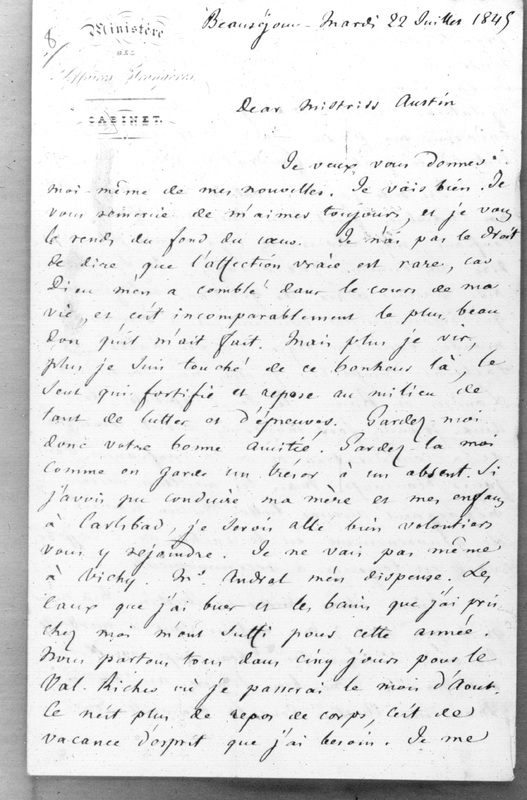 8
Ministère
DES
Affaires Etrangères
CABINET.
Beauséjour - Mardi 22 Juillet 1845
Dear Mistriss Austin
Je veux vous donner
moi-même de mes nouvelles. Je vais bien. Je
vous remercie de m'aimer toujours, et je vous
le rends du fond du coeur. Je n'ai pas le droit
de dire que l'affection vraie est rare, car
Dieu m'en a comblé dans le cours de ma
vie, et c'est incomparablement le plus beau
don qu'il m'ait fait. Mais plus je vis,
plus je suis touché de ce bonheur là, le
seul qui fortifie et repose au milieu de
tant de luttes et d'épreuves. Gardez-moi
donc votre bonne amitié. Gardez-la moi
comme on garde un trésor à un absent. Si
j'avois pu conduire ma mère et mes enfans
à Carlsbad, je serois allé bien volontiers
vous y rejoindre. Je ne vais pas même
à Vichy. Mr. Andral m'en dispense. Les
eaux que j'ai bues et les bains que j'ai pris
chez moi m'ont suffi pour cette année.
Nous partons tous dans cinq jours pour le
Val-Richer où je passerai le mois d'Aout.
Ce n'est plus de repos de corps, c'est de
vacance d'esprit que j'ai besoin. Je me